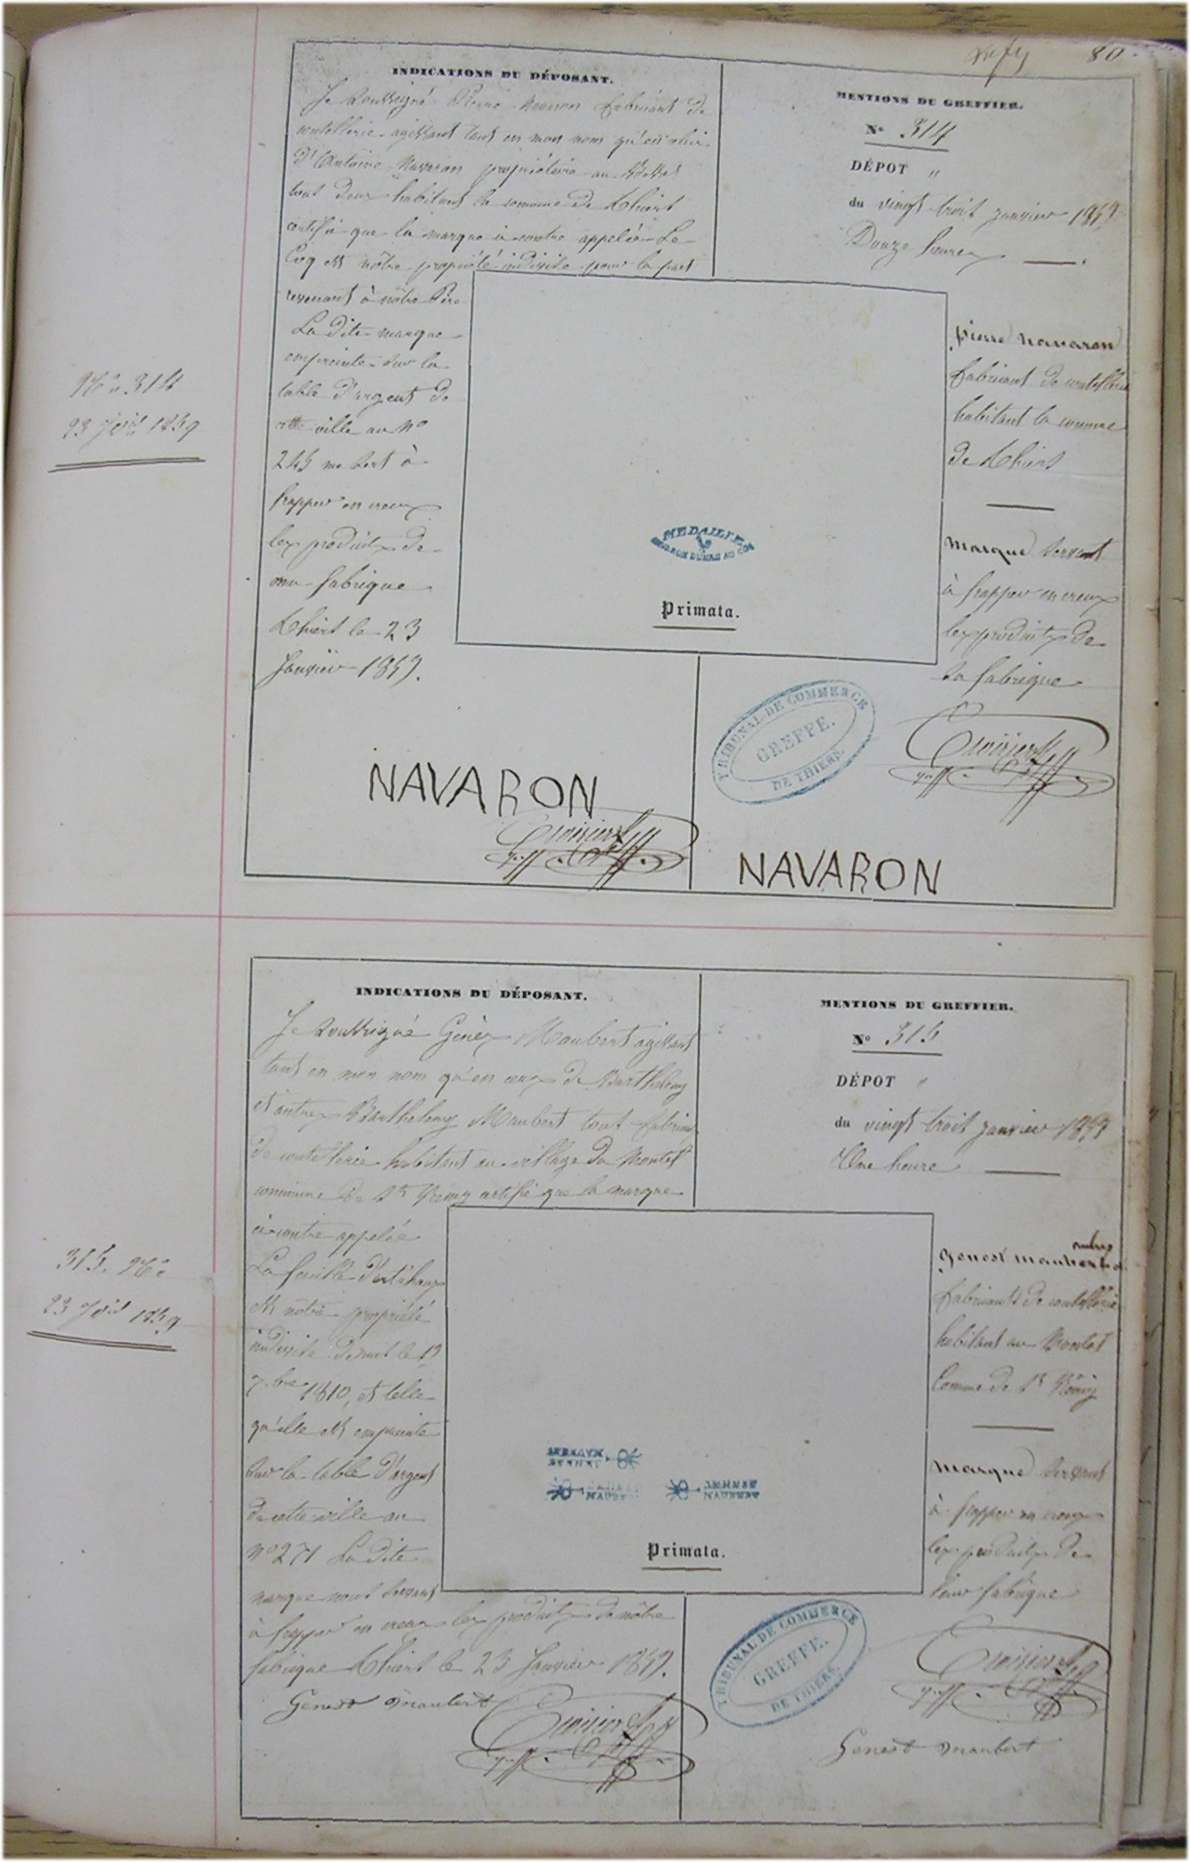 80
INDICATIONS DU DÉPOSANT.
Je soussigné Pierre Navaron fabricant de
coutellerie agissant tant en mon nom qu'en celui
d'Antoine Navaron propriétaire au
tous deux habitant la commune de Thiers
certifie que la marque ci contre appelée Le
Coq est nôtre propriété indivise pour la part
revenant à nôtre Père
La dite marque
empreinte sur la
table d'argent de
cette ville au No
245 me sert à
frapper en creux
les produits de
ma fabrique
Thiers le 23
Janvier 1859.
NAVARON
MENTIONS DU GREFFIER.
No 314
DÉPOT "
du vingt trois janvier 1859
Douze heures
pierre navaron
fabricant de coutellerie
habitant la comune
de Thiers
marque servant
à frapper en creux
les produits de
sa fabrique
NAVARON
MEDAILLE
Primata.
TRIBUNAL DE COMMERCE
GREFFE.
DE THIERS.
No 314
23 1859
INDICATIONS DU DÉPOSANT.
Je soussigné Genès Maubert agissant
tant en mon nom qu'en ceux de Barthelemy
et autre Barthelemy Maubert tous fabricants
de coutellerie habitant au village du Montel
commune de St Rémy certifie que la marque
ci contre appelée
La feuille d'artichaux
est nôtre propriété
indivise depuis le 13
7bre 1810, et telle
qu'elle est empreinte
sur la table d'argent
de cette ville au
No 271 La dite
marque nous servant
à frapper en creux les produits de nôtre
fabrique Thiers le 23 Janvier 1859.
Genest Maubert
MENTIONS DU GREFFIER.
No 315
DÉPOT "
du vingt trois janvier 1859
Une heure
genest maubert
fabricants de coutellerie
habitant au Montel
Comune de St Rémy
marque servant
à frapper en creux
les produits de
leur fabrique
Genest Maubert
Primata.
TRIBUNAL DE COMMERCE
GREFFE.
DE THIERS.
315. No
23 1859